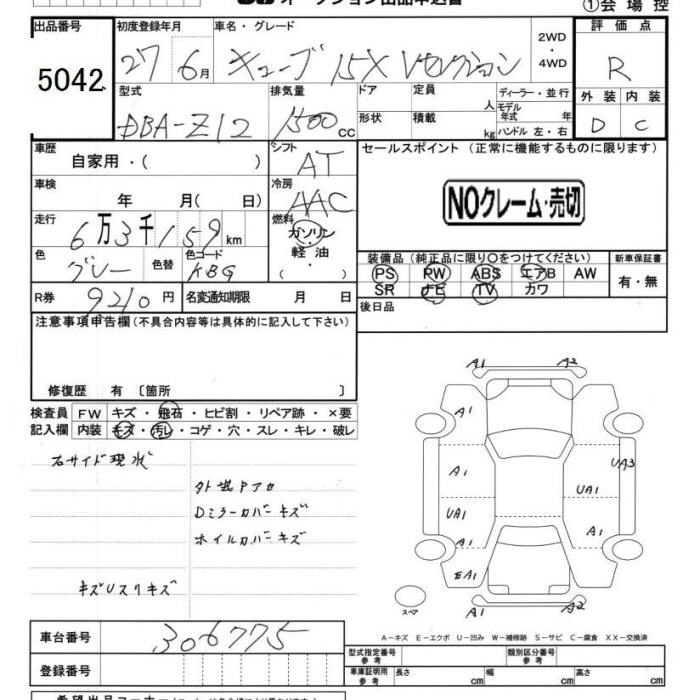 オークション出品申込書
①会場控
出品番号 初度登録年月 車名・グレード 2WD・4WD 評価点
5042 27 6月 キューブ 15X Vセレクション R
型式 排気量 ドア 定員 人 ディーラー・並行 外装 内装
DBA-Z12 1500cc 形状 積載 kg モデル年式 年 ハンドル 左・右 D C
車歴 自家用・( ) シフト AT セールスポイント (正常に機能するものに限ります)
車検 年 月( 日) 冷房 AAC NOクレーム・売切
走行 6万3千159km 燃料 ガソリン・軽油・( )
色 グレー 色替 色コード KBG 装備品(純正品に限り○をつけてください) 新車保証書
PS PW ABS エアB AW 有・無
SR ナビ TV カワ
R券 9210円 名変通知期限 月 日 後日品
注意事項申告欄(不具合内容等は具体的に記入して下さい)
修復歴 有 〔箇所 〕
検査員 FW キズ・飛石・ヒビ割・リペア跡・×要
記入欄 内装 キズ・汚レ・コゲ・穴・スレ・キレ・破レ
右サイド現状
外装Pアカ
Dミラーカバーキズ
ホイルカバーキズ
キズUスリキズ
A1 A2
A1
A1 UA3
UA1 UA1
A1 A1
EA1
スペア A1 A2
A-キズ E-エクボ U-凹み W-補修跡 S-サビ C-腐食 XX-交換済
車台番号 306775
登録番号
型式指定番号 参考 類別区分番号 参考
車庫証明用 参考 長さ cm 幅 cm 高さ cm